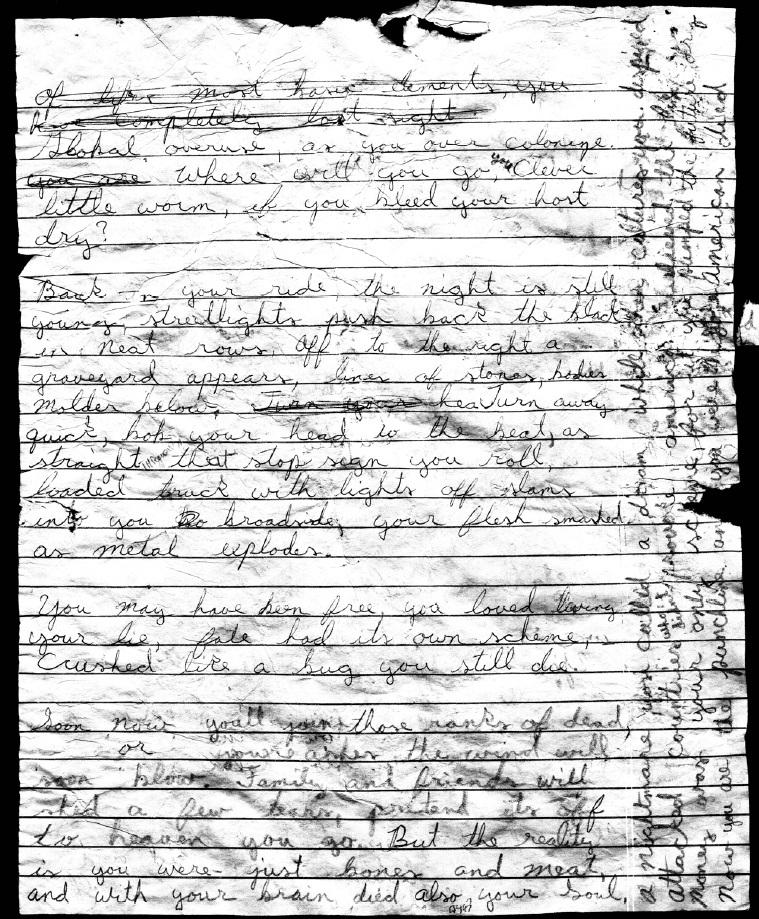 Of life's most basic elements, you
have completely lost sight
Global overuse, as you over colonize.
you are Where will you go, you clever
little worm, if you bleed your host
dry?
Back in your ride the night is still
young, streetlights push back the black
in neat rows. Off to the right a
graveyard appears, lines of stones, bodies
molder below, Turn your hea Turn away
quick, bob your head to the beat, as
straight through that stop sign you roll,
loaded truck with lights off slams
into you broadside, your flesh smashed
as metal explodes.
You may have been free, you loved living
your lie, fate had its own scheme,
Crushed like a bug you still die.
Soon now you'll join those ranks of dead,
or your ashes the wind will
soon blow. Family and friends will
shed a few tears, pretend its off
to heaven you go. But the reality
is you were just bones and meat,
and with your brain died also your soul.
a nightmare you called a dream. whole other cultures you despised
attacked countries
money was your only scheme, for it you pumped the dry
Now you are the punchline, and you were the American dead